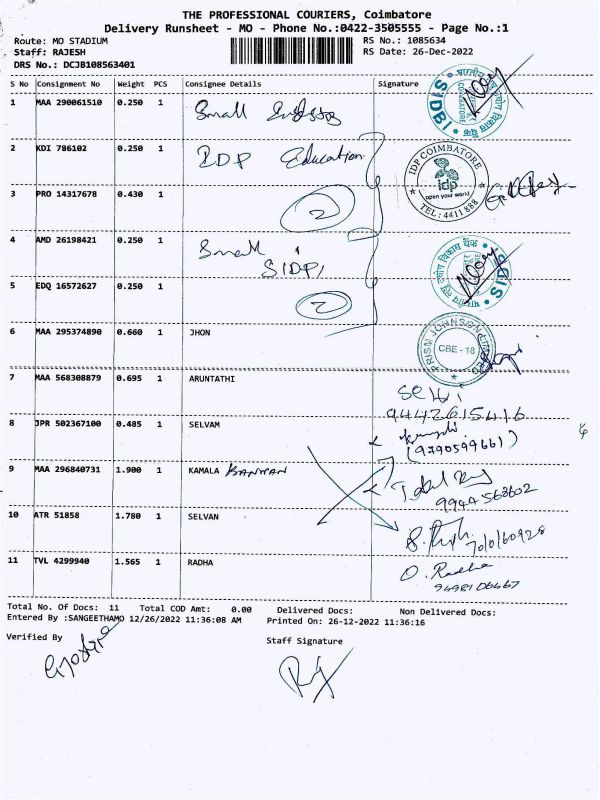 THE PROFESSIONAL COURIERS, Coimbatore
Delivery Runsheet - MO - Phone No.:0422-3505555 - Page No.:1
Route: MO STADIUM RS No.: 1085634
Staff: RAJESH RS Date: 26-Dec-2022
DRS No.: DCJB108563401
S No Consignment No Weight PCS Consignee Details Signature
1 MAA 290061510 0.250 1 Small
SIDBI COIMBATORE
2 KDI 786102 0.250 1 IDP Education
IDP COIMBATORE
idp
open your world
TEL: 4411 888
3 PRO 14317678 0.430 1 2
4 AMD 26198421 0.250 1 Small
SIDBI
5 EDQ 16572627 0.250 1 2
6 MAA 295374890 0.660 1 JHON
PRISM JOHNSON LIMITED
CBE - 18
7 MAA 568308879 0.695 1 ARUNTATHI
Selvi
9442615416
8 JPR 502367100 0.485 1 SELVAM
(9790599661)
9 MAA 296840731 1.900 1 KAMALA KANNAN
9944568602
10 ATR 51858 1.780 1 SELVAN
7010160928
11 TVL 4299940 1.565 1 RADHA O. Radha
Total No. Of Docs: 11 Total COD Amt: 0.00 Delivered Docs: Non Delivered Docs:
Entered By :SANGEETHAMO 12/26/2022 11:36:08 AM Printed On: 26-12-2022 11:36:16
Verified By Staff Signature